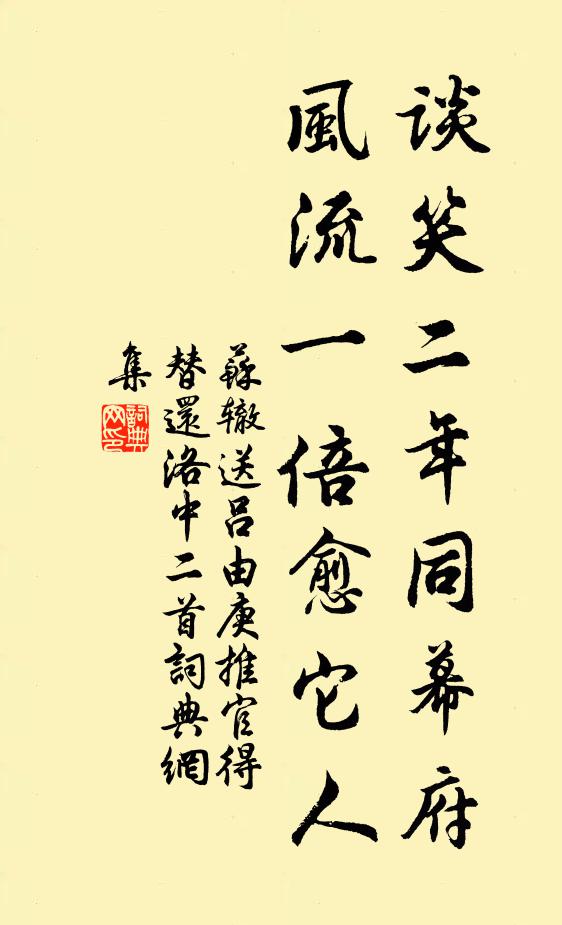 談笑二年同幕府
風流一倍愈它人
蘇辙送呂由庚推官得
替還洛中二首詞典網
集
詞典
网印